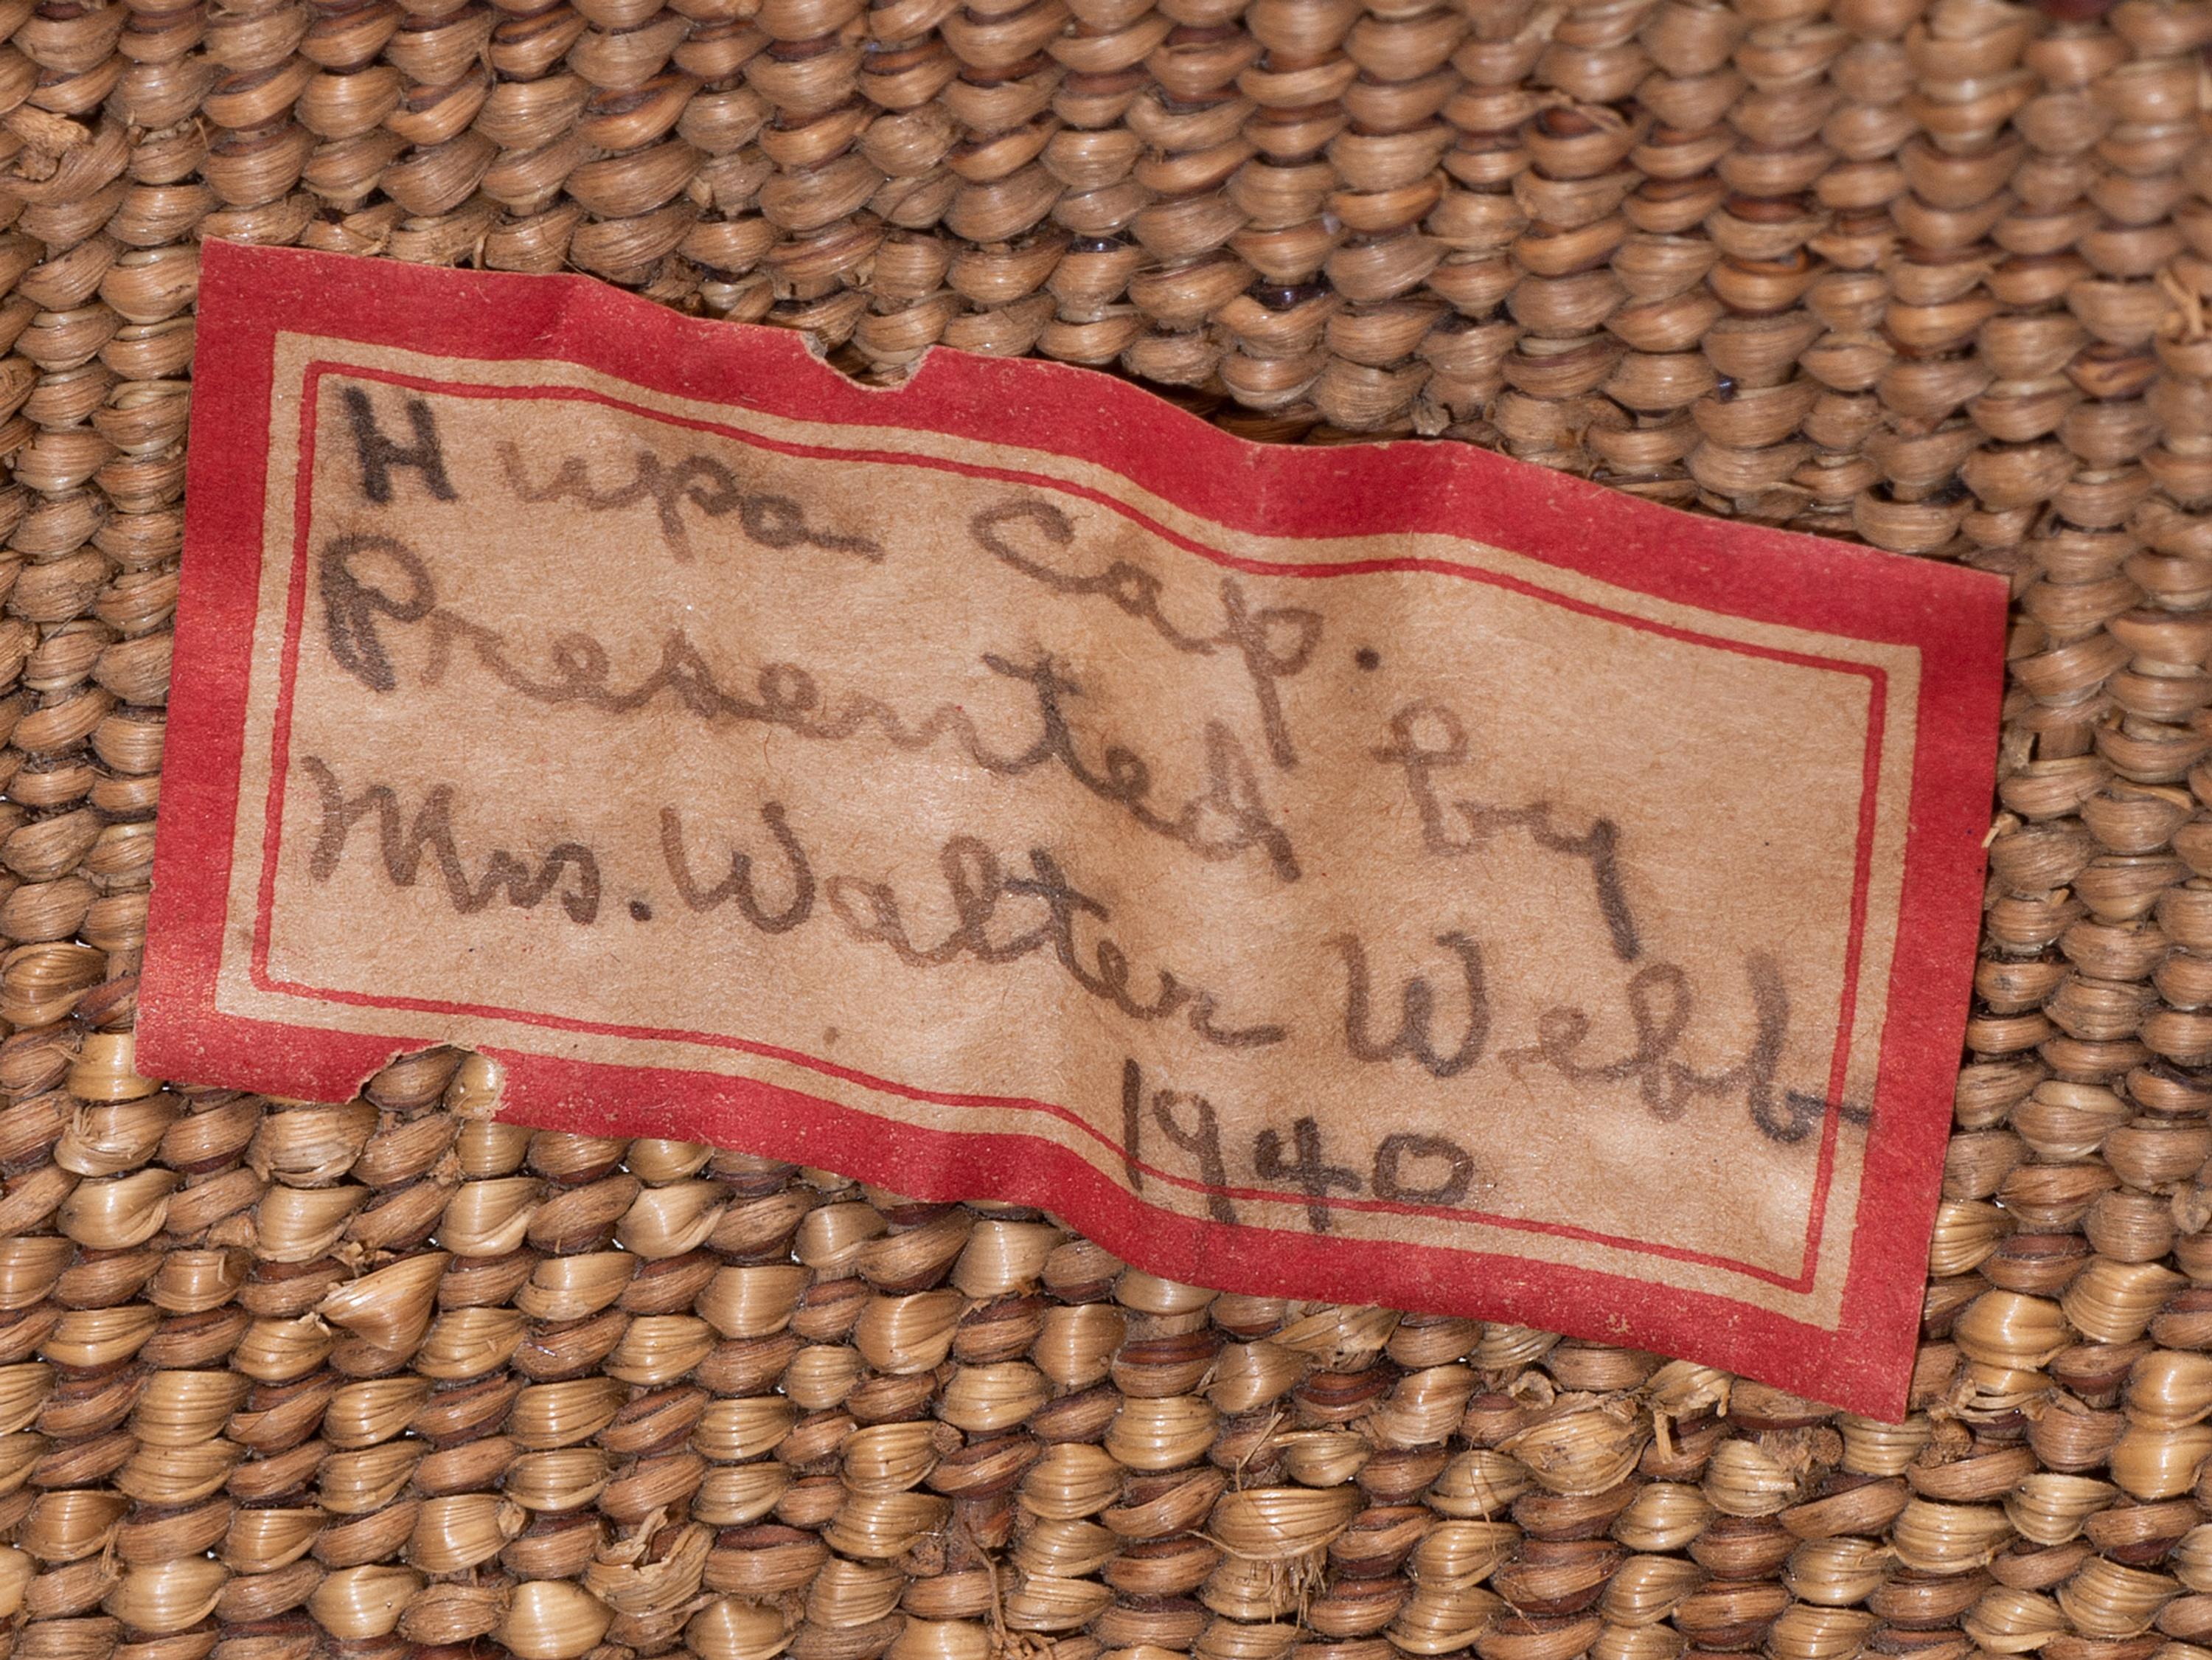 Hupa Cap.
Presented by
Mrs. Walter Webb
1940